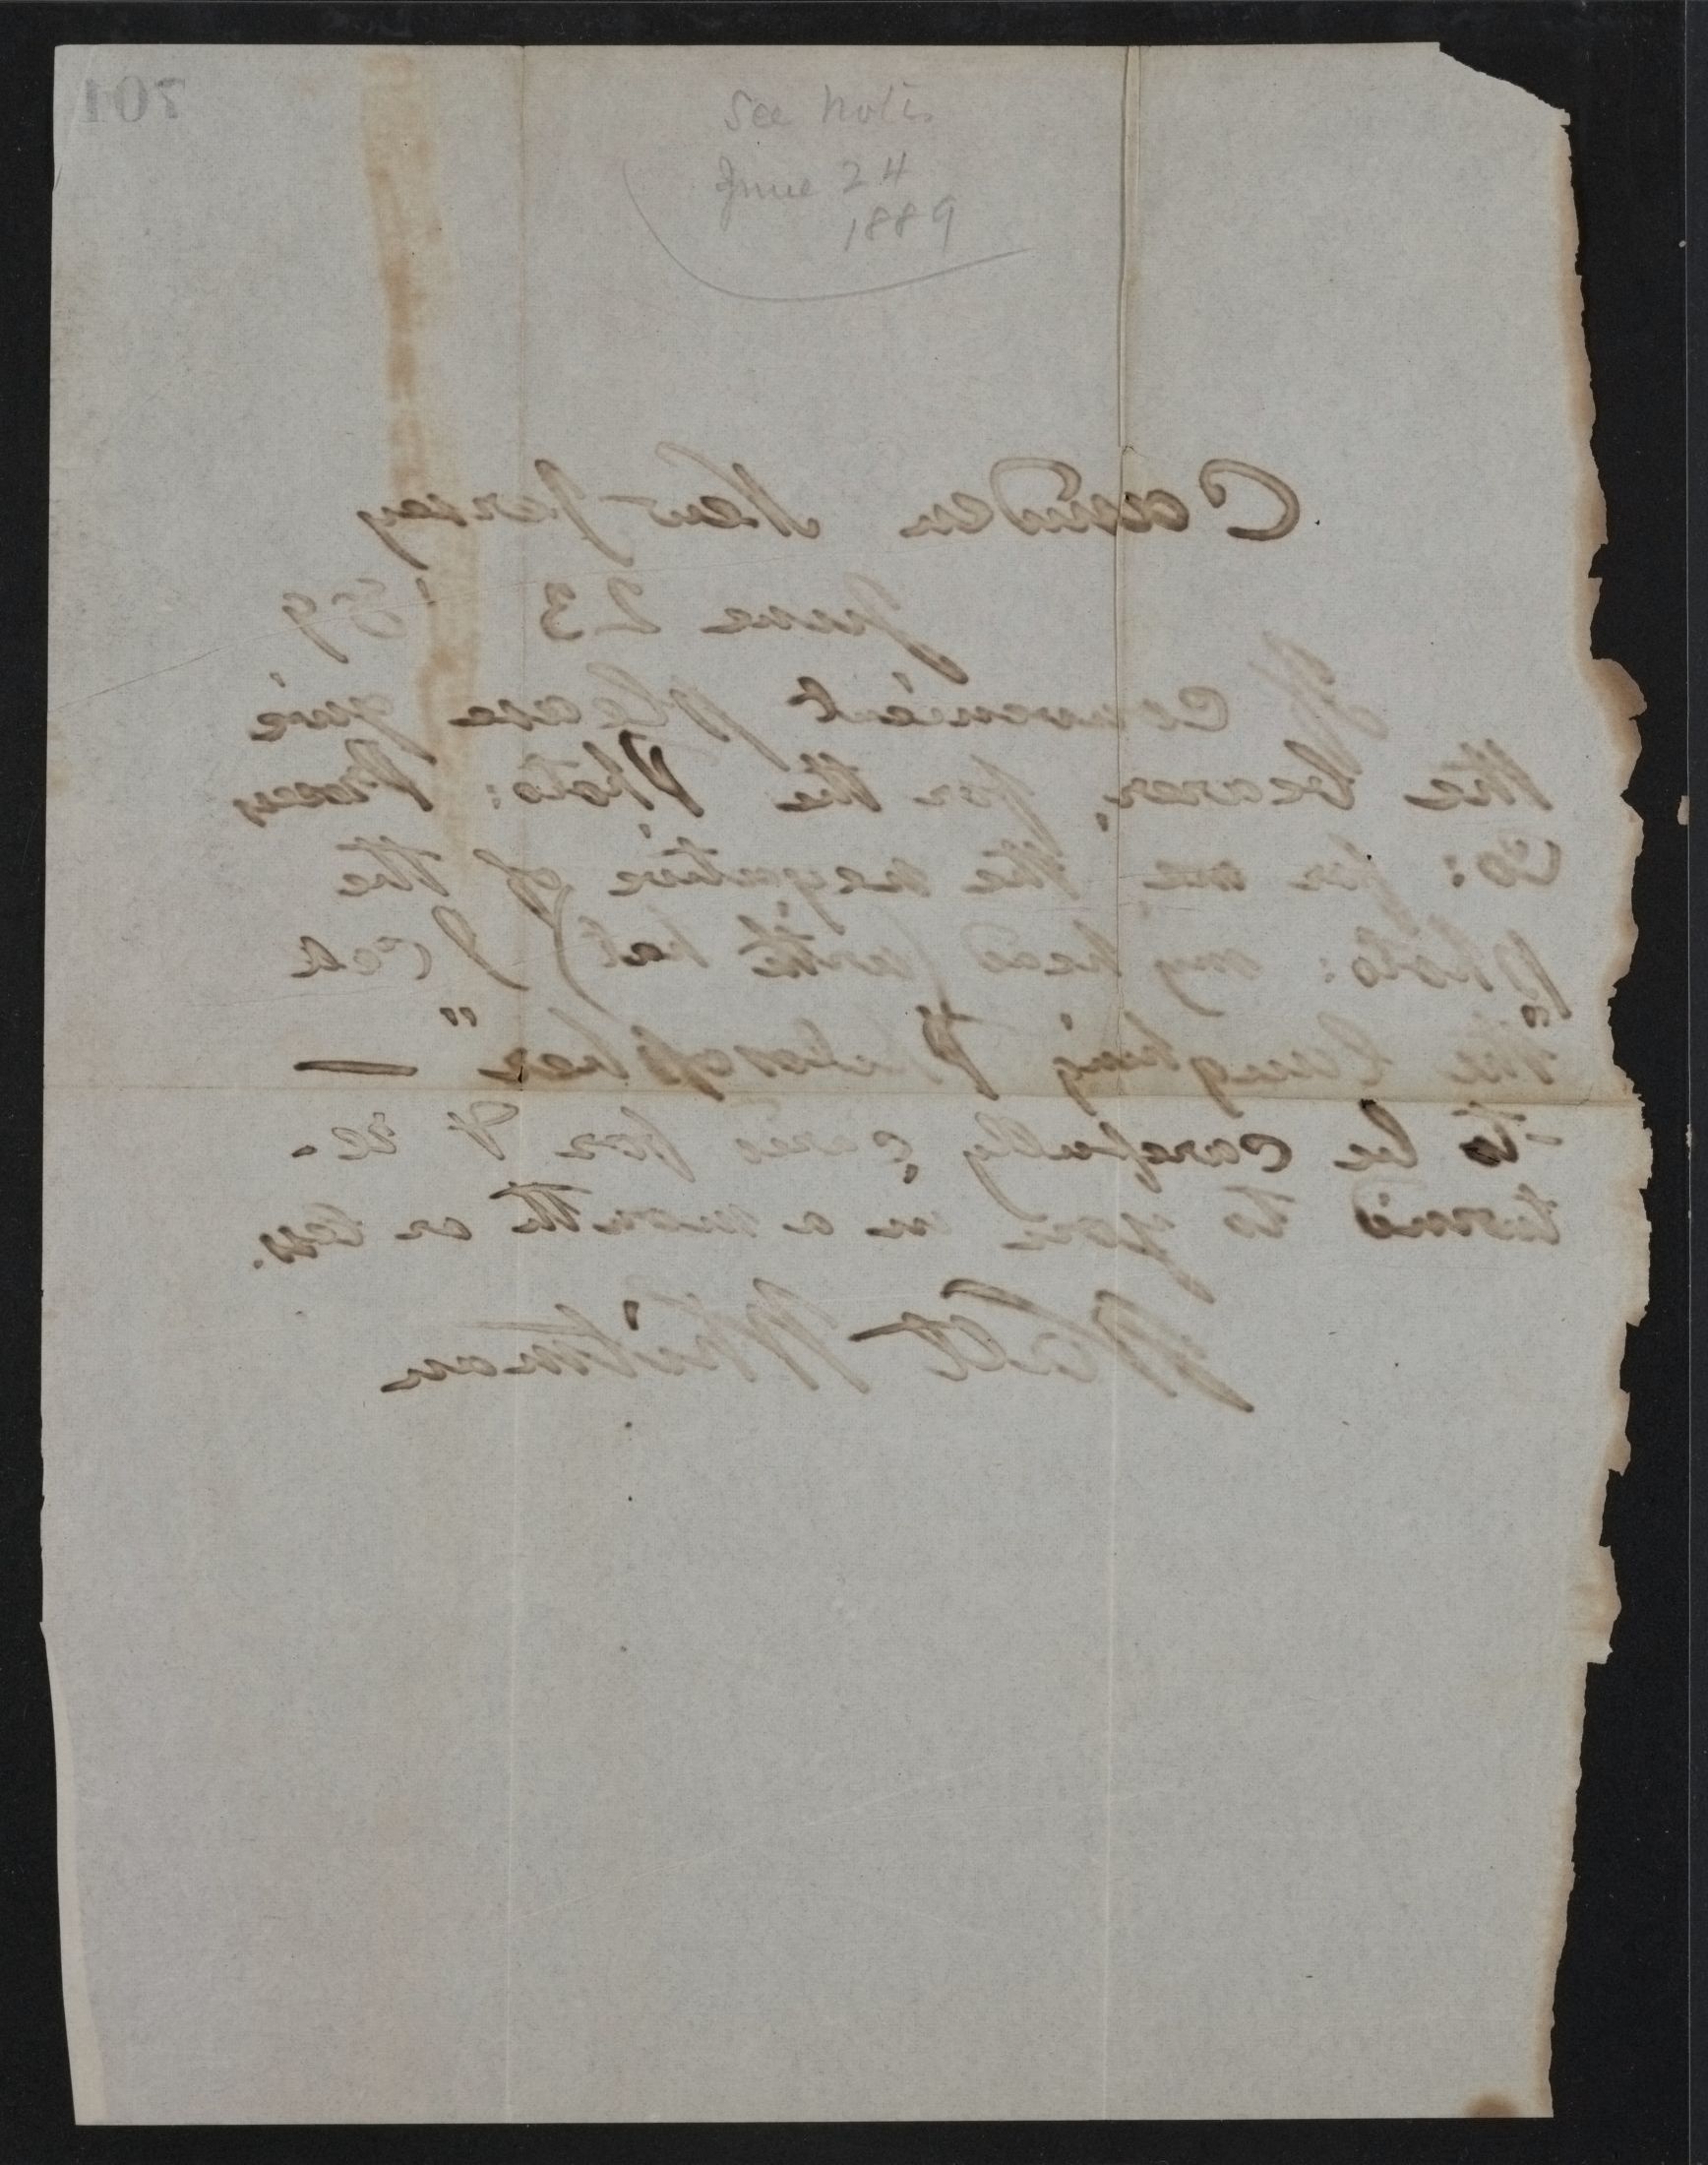 701
See notes
June 24
1889
Camden New Jersey
June 23 '89
If convenient please give
the bearer, for the Photo: Process
Co: for me, the negative of the
photo: my head (with hat) I call
"the laughing Philosopher" —
to be carefully cared for & re-
turned to you in a month or less.
Walt Whitman